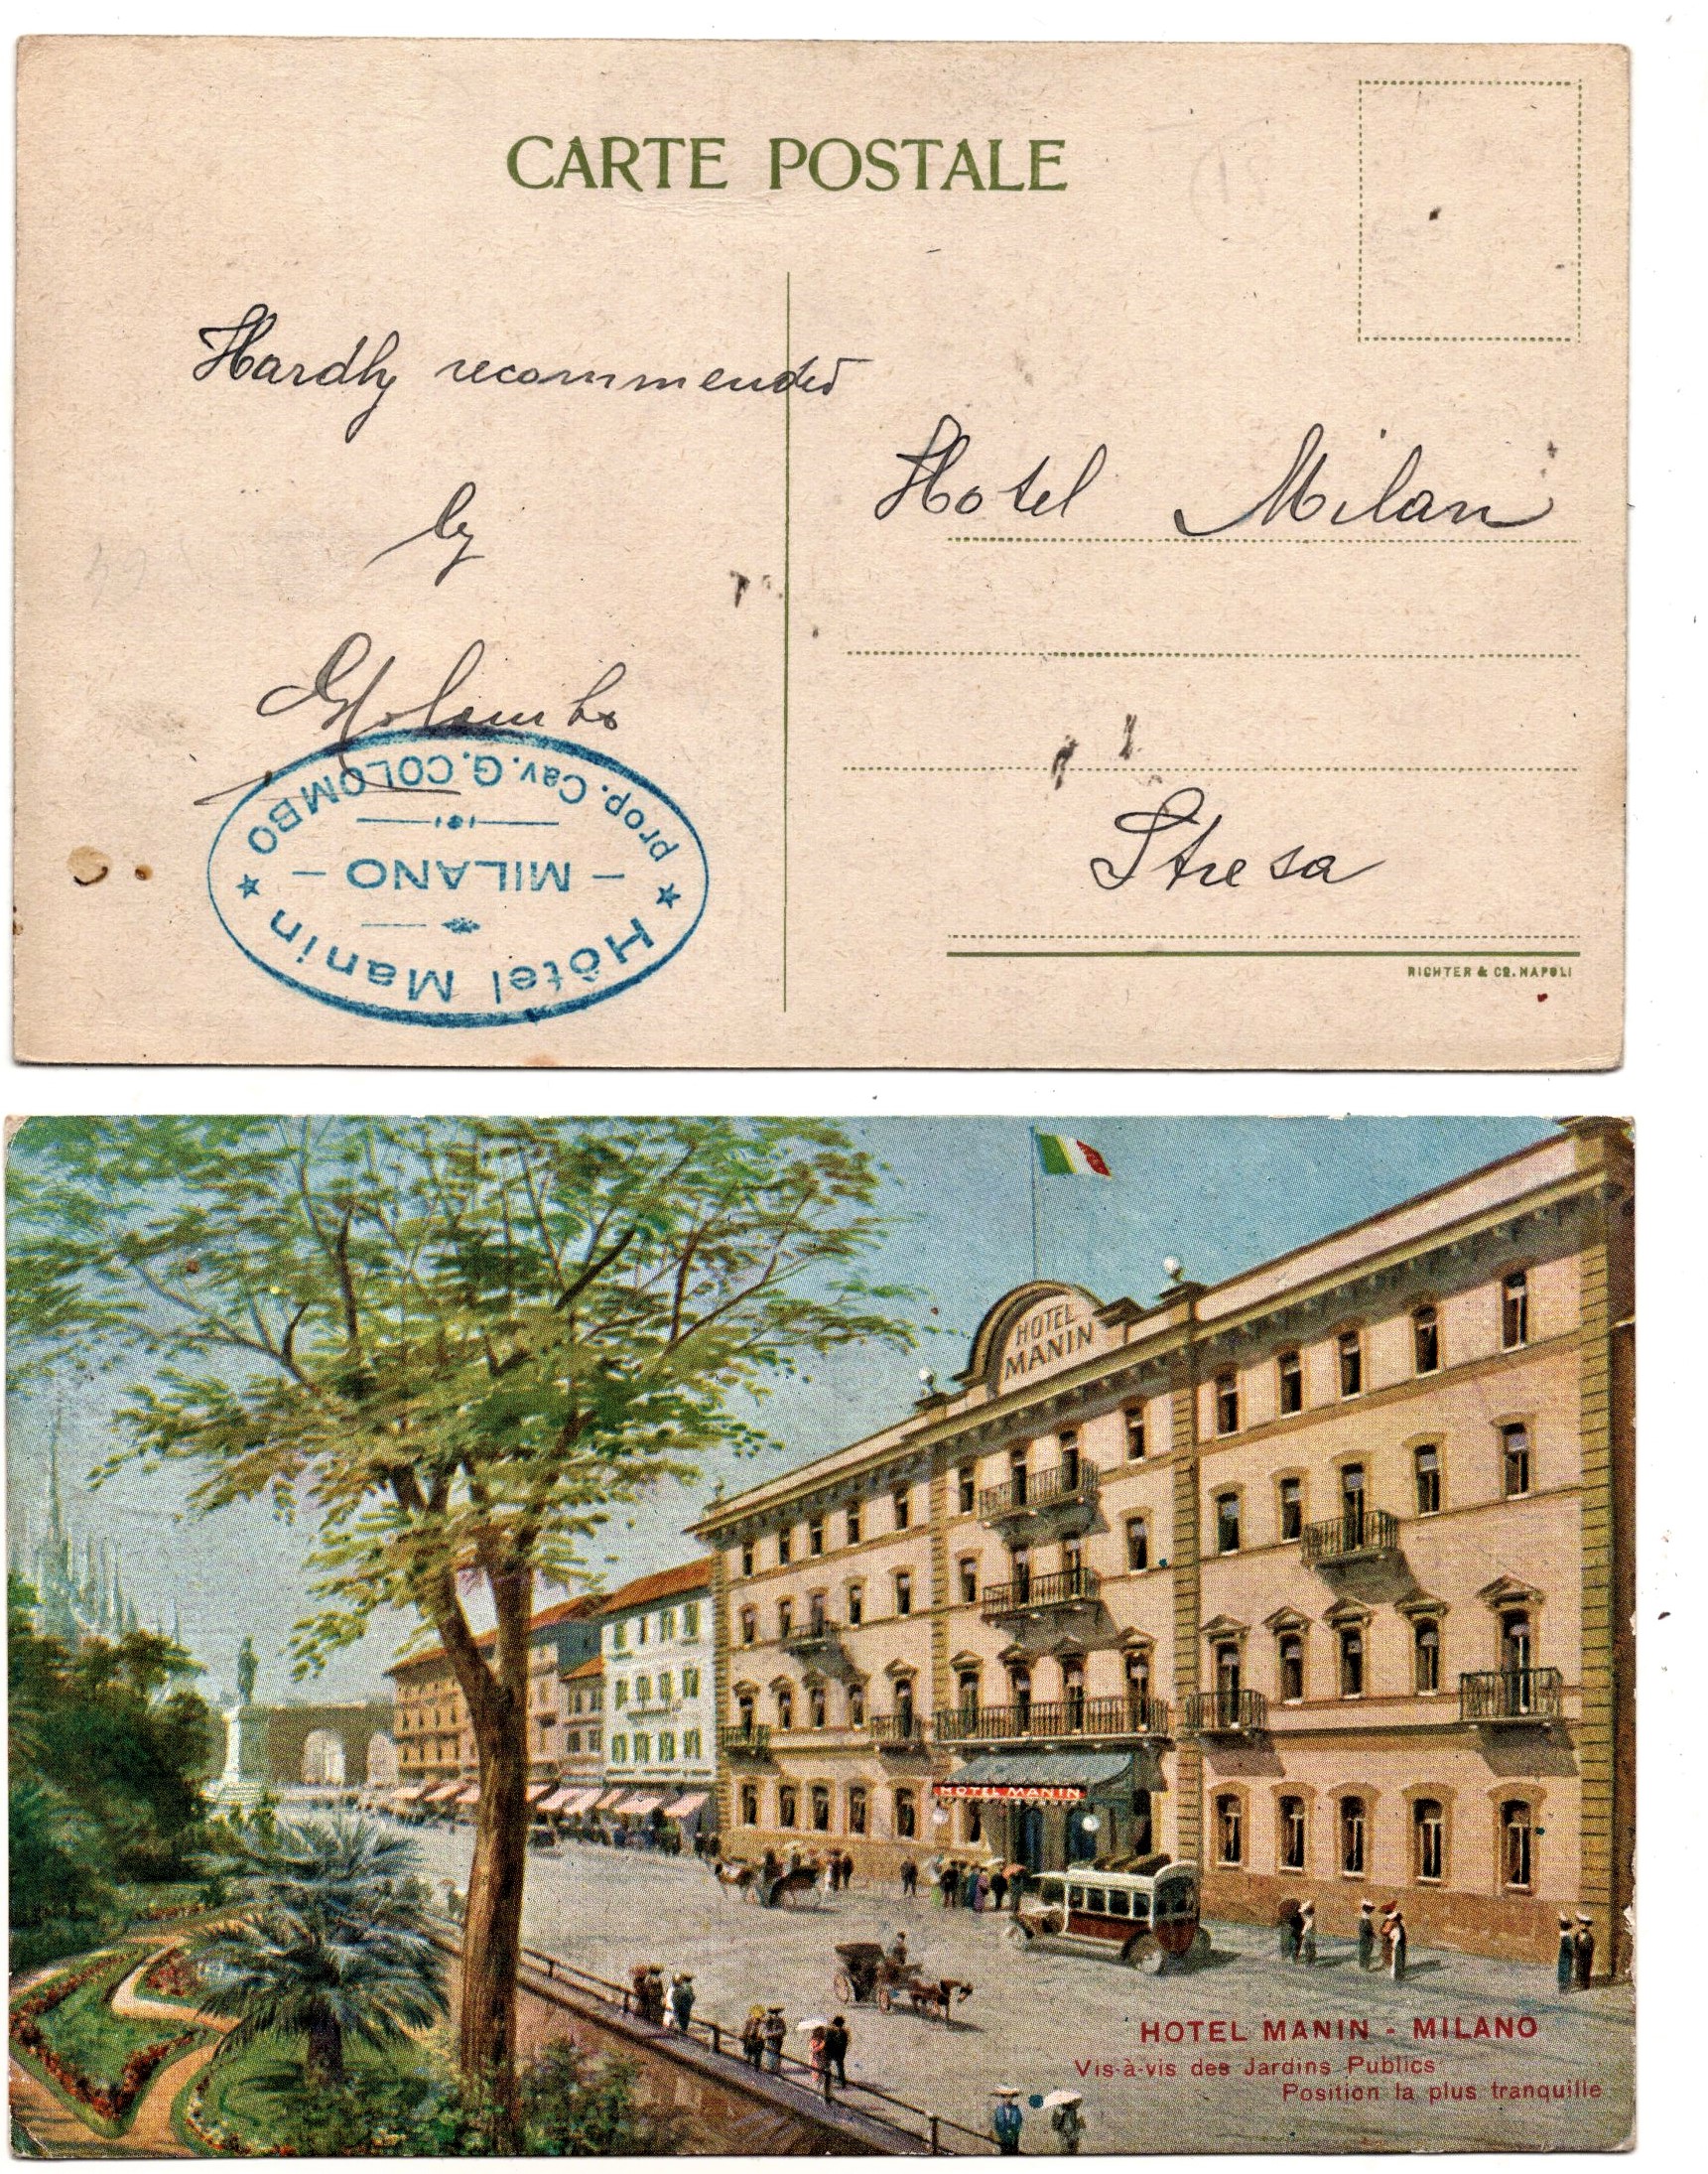 CARTE POSTALE
Hardly recommended
by
GColombo
Hotel Milan
Stresa
prop. Cav. G. COLOMBO
— MILANO —
★ Hôtel Manin ★
RICHTER & Co. NAPOLI
HOTEL
MANIN
HOTEL MANIN
HOTEL MANIN - MILANO
Vis-à-vis des Jardins Publics
Position la plus tranquille